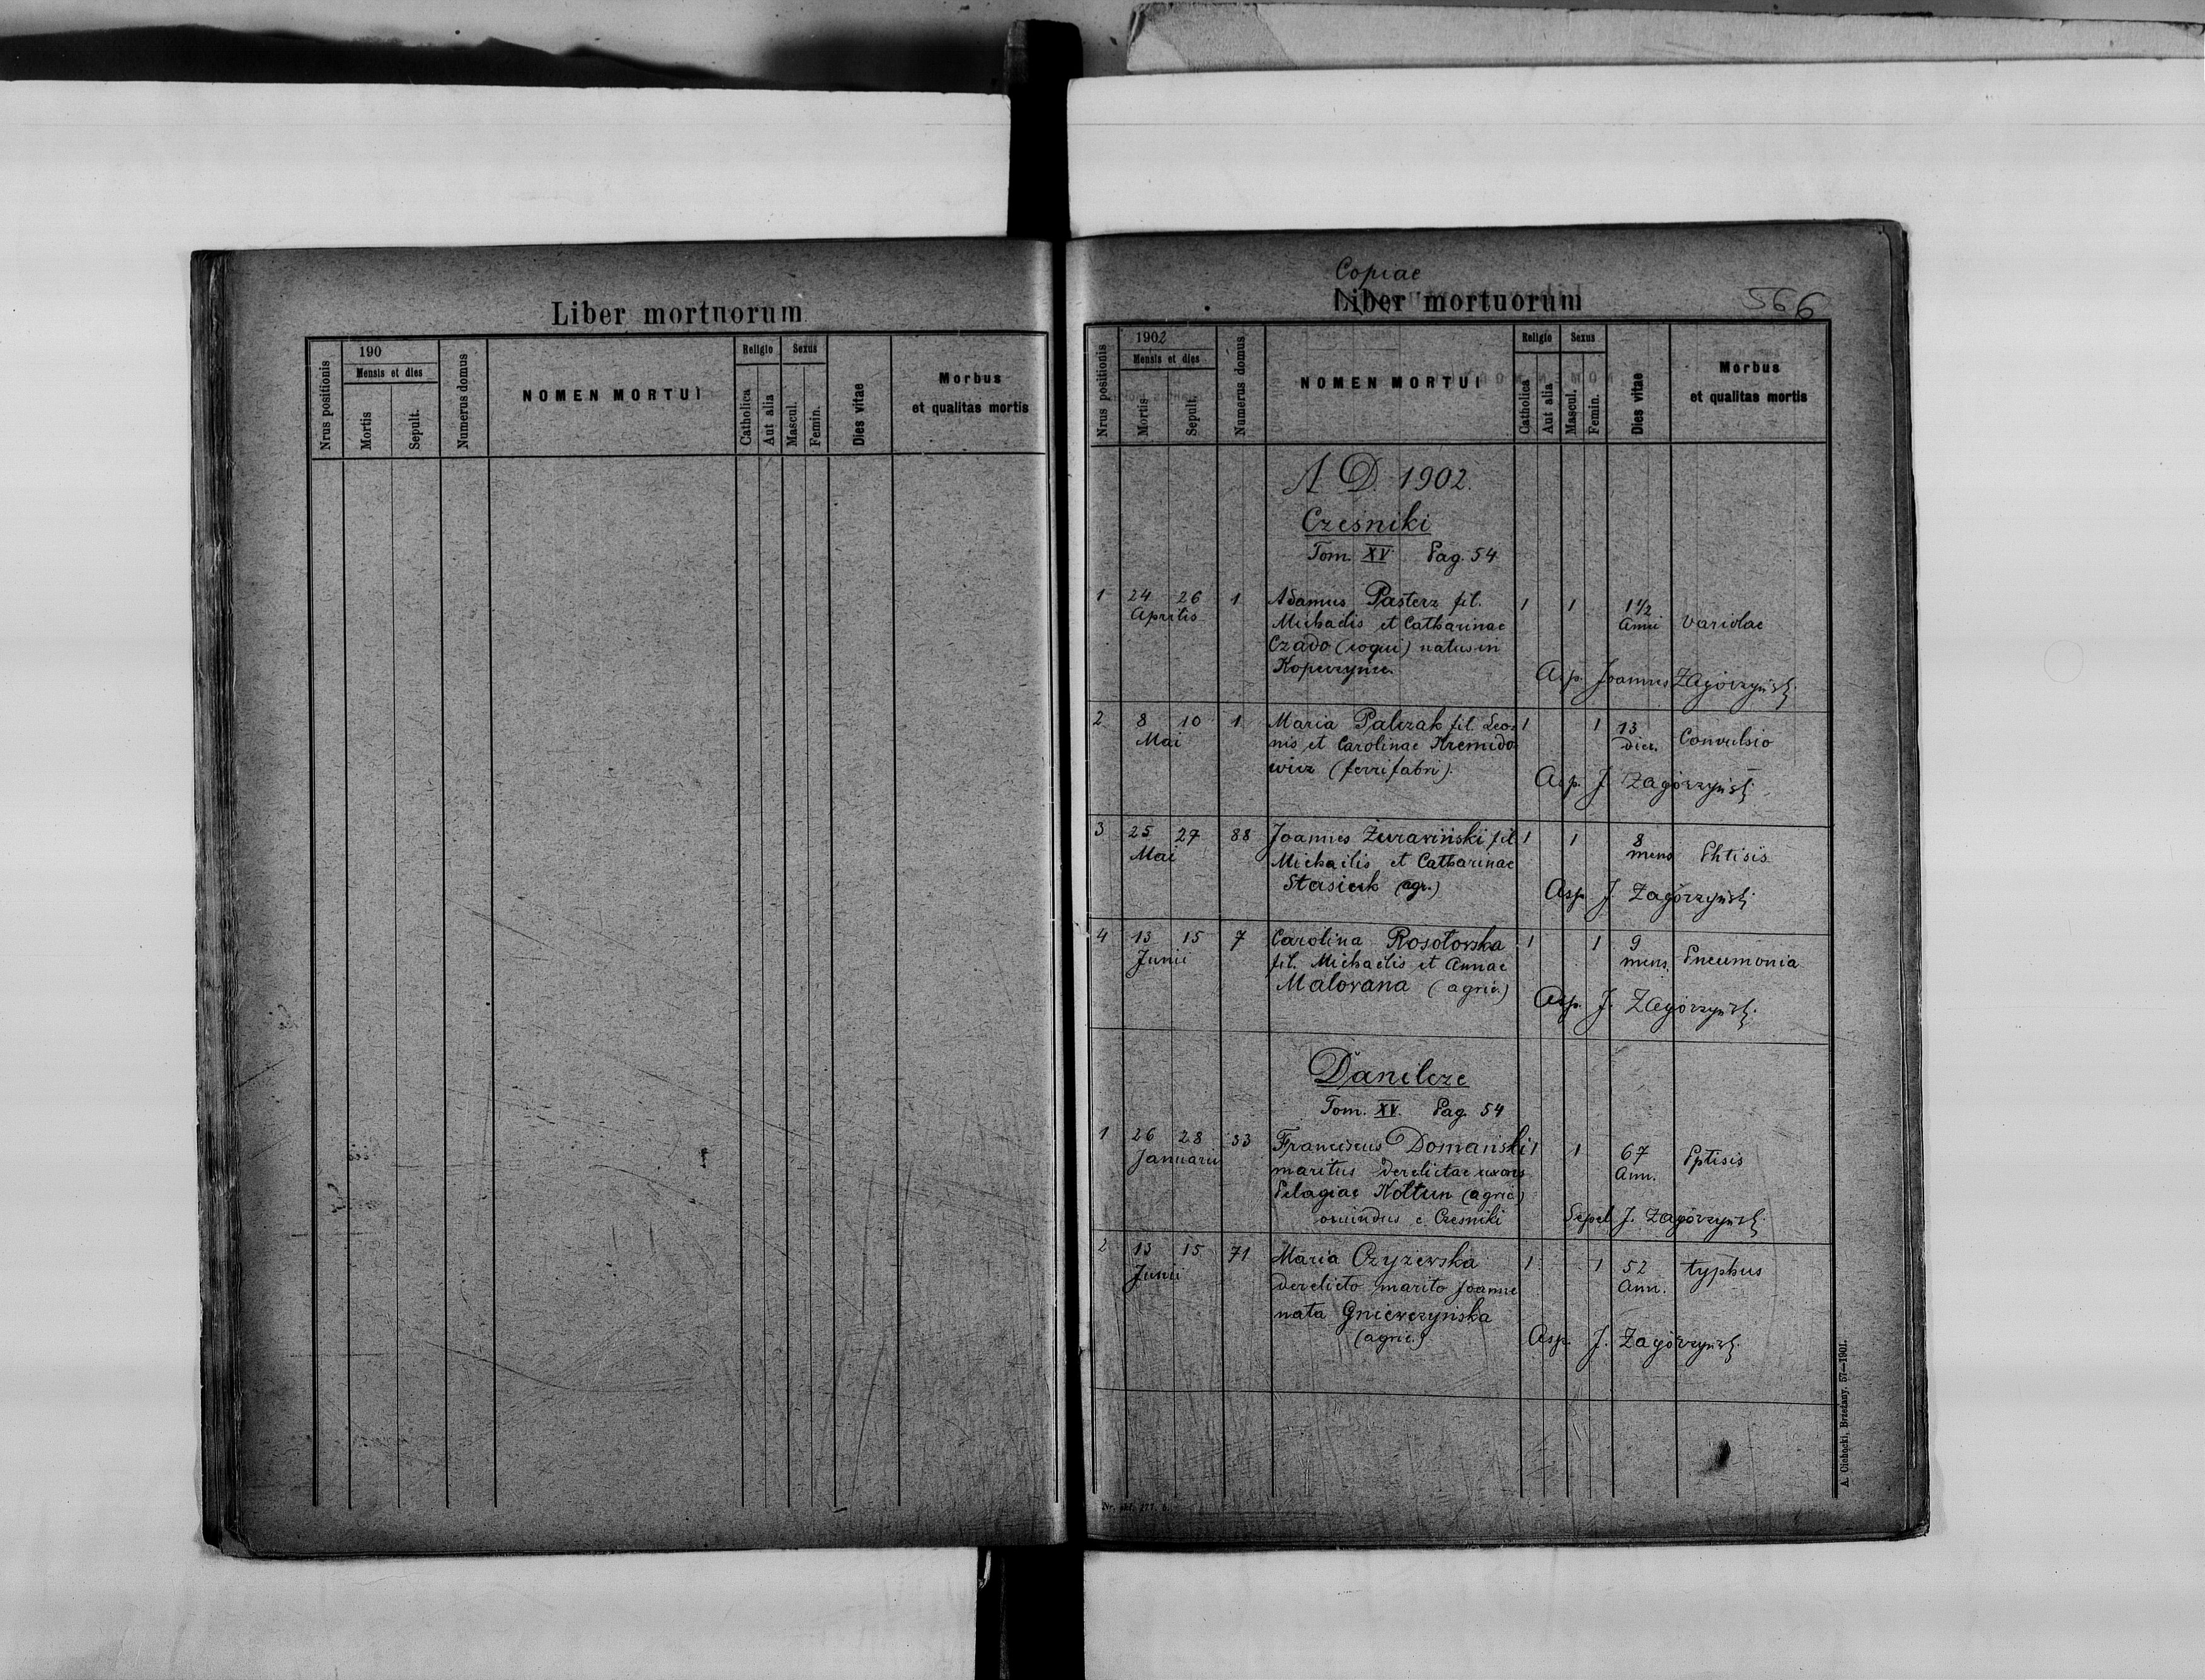 Liber mortuorum
Nrus positionis
190
Mensis et dies
Mortis
Sepult.
Numerus domus
NOMEN MORTUI
Religio
Catholica
Aut alia
Sexus
Mascul.
Femin.
Dies vitae
Morbus
et qualitas mortis
Copiae
Liber mortuorum
566
Nrus positionis
1902
Mensis et dies
Mortis
Sepult.
Numerus domus
NOMEN MORTUI
Religio
Catholica
Aut alia
Sexus
Mascul.
Femin.
Dies vitae
Morbus
et qualitas mortis
A D. 1902.
Cześniki
Tom. XV Pag. 54
1 24 26 1 Adamus Pasterz fil. 1 1 1 1/2
Aprilis Michaelis et Catharinae Anni Variolae
Czado (coqui) natus in
Kopeczynce. Asp. Joannes Zagórzyński
2 8 10 1 Maria Palczak fil. Leo- 1 1 13
Mai nis et Carolinae Kremido dier. Convulsio
wicz (ferrifabri). Asp. J. Zagórzyński
3 25 27 88 Joannes Żurawiński fil 1 1 8
Mai Michaelis et Catharinae mens Phtisis
Stasiuk (agr.) Asp. J. Zagórzyński
4 13 15 7 Carolina Rosołowska 1 1 9
Junii fil. Michaelis et Annae mens. Pneumonia
Malowana (agric.) Asp. J. Zagórzyński
Danilcze
Tom. XV. Pag. 54
1 26 28 33 Franciscus Domański 1 1 67 Phtisis
Januarii maritus derelictae uxoris Ann.
Pelagiae Kołtun (agric)
oriundus e Czesniki Sepel. J. Zagórzyński
2 13 15 71 Maria Czyżewska 1 1 52 typhus
Junii derelicto marito Joanne Ann.
nata Gniewczyńska
(agric.) Asp. J. Zagórzyński
A. Cichocki, Brzeżany. 57—1901.